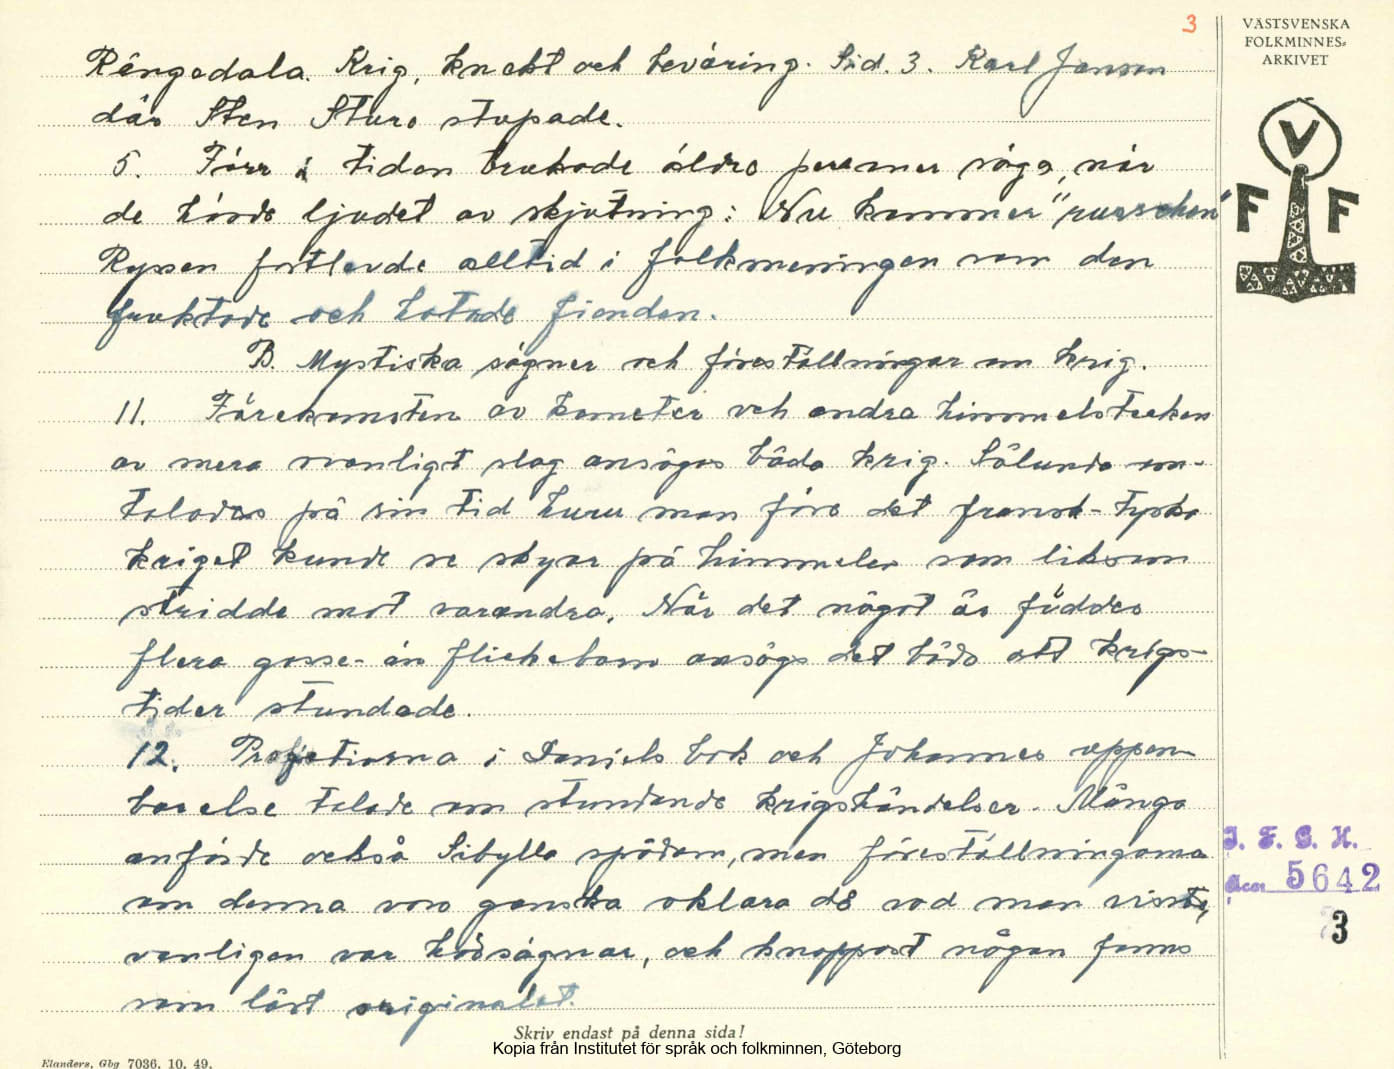 3
VÄSTSVENSKA
FOLKMINNES=
ARKIVET
V
F F
Rångedala. Krig, knekt och beväring. Sid. 3. Karl Janson
där Sten Sture stupade.
5. Förr i tiden brukade äldre personer säga, när
de hörde ljudet av skjutning: Nu kommer "rysschen"
Ryssen fortlevde alltid i folkmeningen som den
fruktade och hatade fienden.
B. Mystiska sägner och föreställningar om krig.
11. Förekomsten av kometer och andra himmelstecken
av mera ovanligt slag ansågos båda krig. Sålunda om-
talades på sin tid huru man före det fransk-tyska
kriget kunde se skyar på himmelen som liksom
stridde mot varandra. När det något år föddes
flera gosse- än flickebarn ansågs det båda att krigs-
tider stundade.
12. Profetiorna i Daniels bok och Johannes uppen-
barelse talade om stundande krigshändelser. Många
anförde också Sibylla spådom, men föreställningarna
om denna voro ganska oklara då vad man visste,
vanligen var hörsägner, och knappast någon fanns
som läst originalet.
I. F. G. H.
Acc. 5642
3
Skriv endast på denna sida!
Kopia från Institutet för språk och folkminnen, Göteborg
Elanders, Gbg 7036. 10. 49.